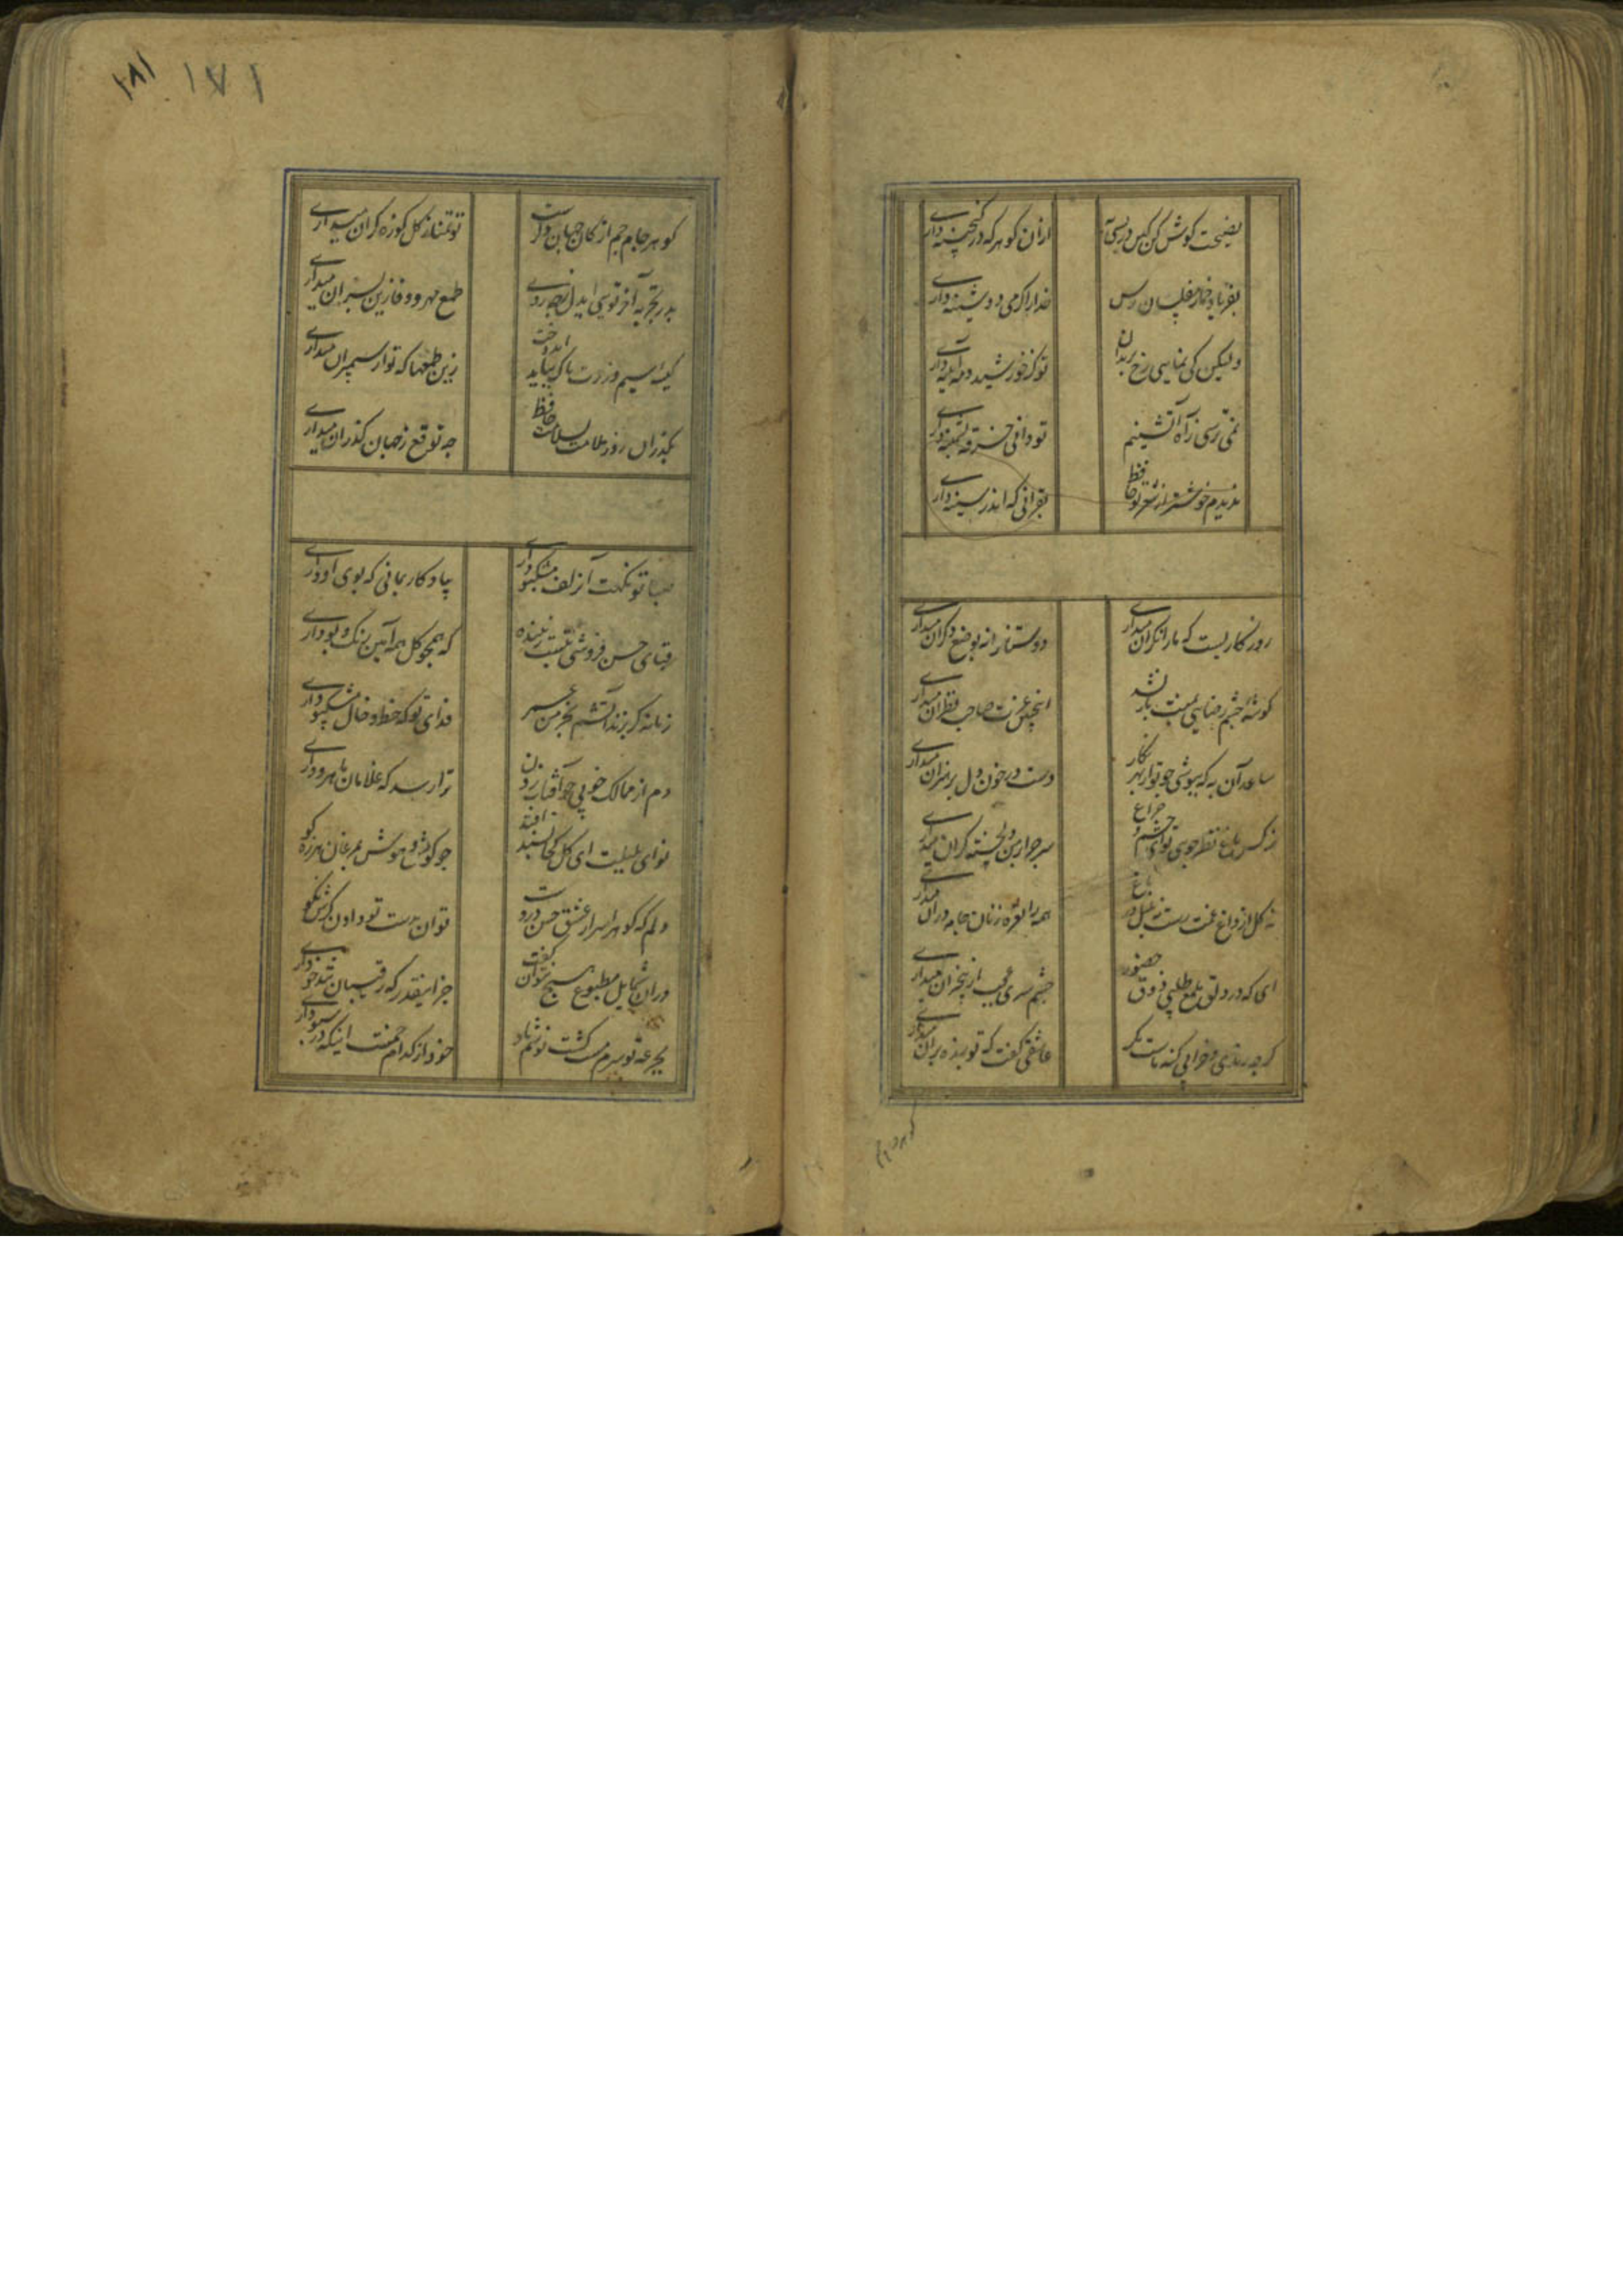 نصیحت گوش کن کین در بسی به
ازان گوهر که در گنجینه داری
بفریاد خمار مفلسان رس
خدارا گر می دوشینه داری
ولیکن کی نمایی رخ برندان
تو کز خورشید و مه آیینه داری
نمی ترسی ز آه آتشینم
تو دانی خرقه پشمینه داری
ندیدم خوشتر از شعر تو حافظ
بقرآنی که اندر سینه داری
روزگاریست که مارا نگران میداری
دوستانرا نه بوضع دگران میداری
گوشه چشم رضایی بمنت باز نشد
اینچنین عزت صاحب نظران میداری
ساعد آن به که بپوشی چو تو از بهر نگار
دست در خون دل پرهنران میداری
نرگس باغ نظر چون تویی ای چشم و چراغ
سر چرا بر من دلخسته گران میداری
نه گل از داغ غمت رست نه بلبل در باغ
همه را نعره زنان جامه دران میداری
ای که در دلق ملمع طلبی ذوق حضور
چشم سری عجب از بیخبران میداری
گرچه رندی و خرابی گنه ماست مگر
عاشقی گفت که تو بنده بران میداری
۱۸۱ ۱۷۱
گوهر جام جم از کان جهان دگرست
تو تمنا ز گل کوزه گران میداری
پدر تجربه آخر تویی ایدل ز چه روی
طمع مهر و وفا زین پسران میداری
کیسه سیم و زرت پاک بباید انداخت
زین طمعها که تو از سیمبران میداری
مگذران روز ملامت بسلامت حافظ
چه توقع ز جهان گذران میداری
صبا تو نکهت آن زلف مشکبو داری
بیادگار بمانی که بوی او داری
قبای حسن فروشی نیست زیبنده
که همچو گل همه آیین رنگ و بو داری
زمانه گر بزند آتشم بخرمن عمر
فدای تو که خط و خال مشکبو داری
دم از ممالک خوبی چو آفتاب زدن
ترا رسد که غلامان ماهرو داری
نوای بلبلت ای گل کجا پسند افتد
چو گوش و هوش بمرغان هرزه گو
دلم که گوهر اسرار عشق حسن دروست
توان بدست تو دادن گرش نکو
دران شمایل مطبوع هیچ نتوان گفت
جز اینقدر که رقیبان تندخو داری
بجرعه تو سرم مست گشت نوشم باد
خود از کدام خمست اینکه در سبو داری